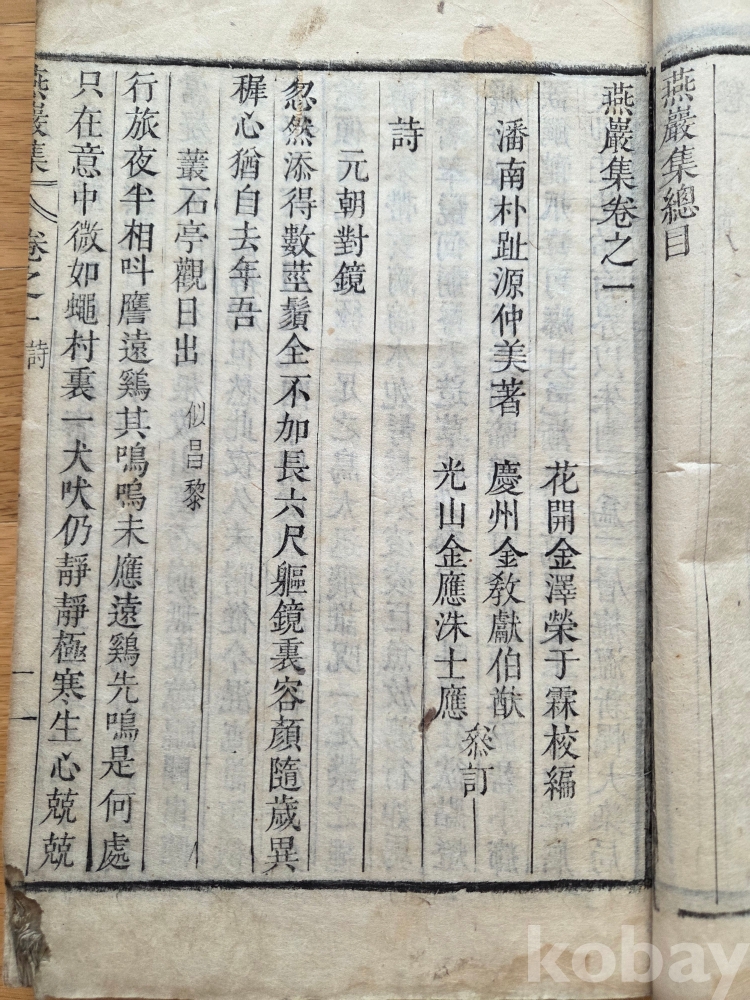 燕巖集總目
燕巖集卷之一
花開金澤榮于霖校編
潘南朴趾源仲美著
慶州金敎獻伯猷
光山金應洙士應
叅訂
詩
元朝對鏡
忽然添得數莖鬚全不加長六尺軀鏡裏容顏隨歲異
穉心猶自去年吾
叢石亭觀日出 似昌黎
行旅夜半相呌譍遠鷄其鳴鳴未應遠鷄先鳴是何處
只在意中微如蠅村裏一犬吠仍靜靜極寒生心兢兢
燕巖集 卷之一 詩 一
kobay